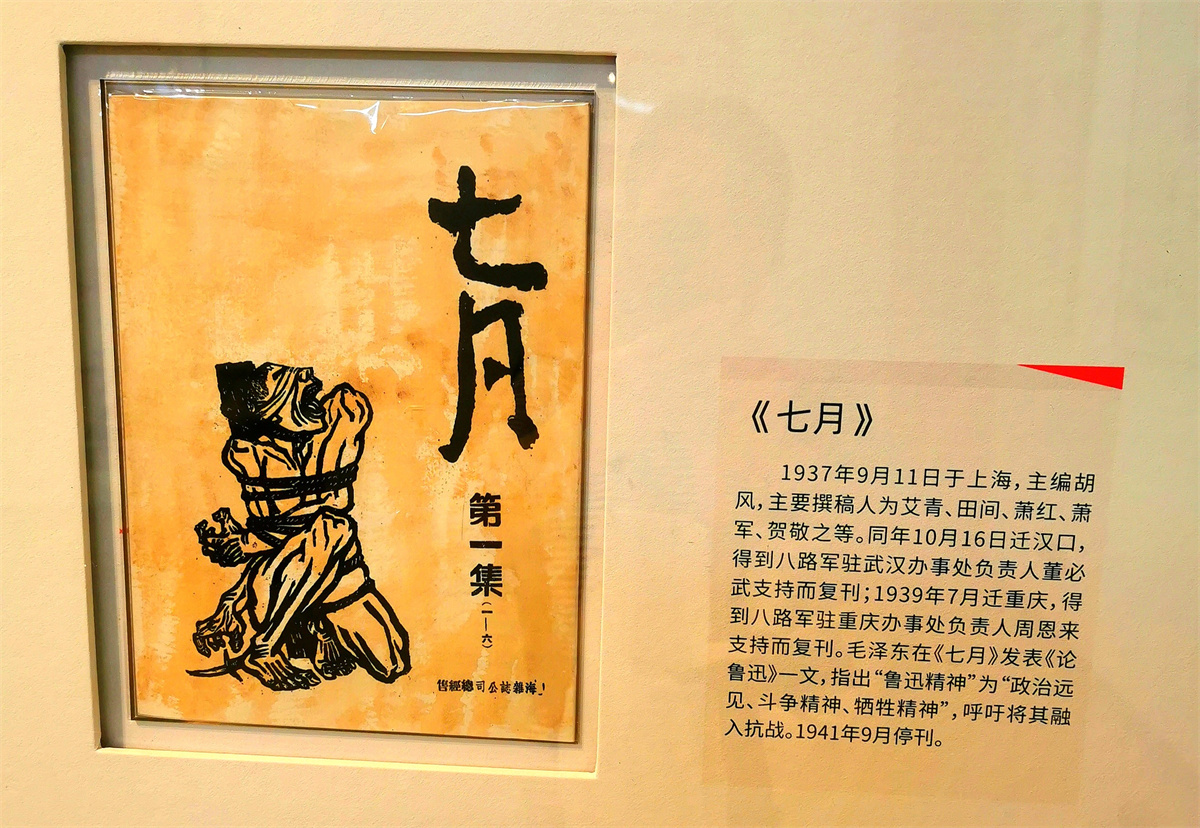 七月
第一集
(一—六)
上海雜誌公司總經售
《七月》
1937年9月11日于上海,主编胡
风,主要撰稿人为艾青、田间、萧红、萧
军、贺敬之等。同年10月16日迁汉口,
得到八路军驻武汉办事处负责人董必
武支持而复刊;1939年7月迁重庆,得
到八路军驻重庆办事处负责人周恩来
支持而复刊。毛泽东在《七月》发表《论
鲁迅》一文,指出“鲁迅精神”为“政治远
见、斗争精神、牺牲精神”,呼吁将其融
入抗战。1941年9月停刊。